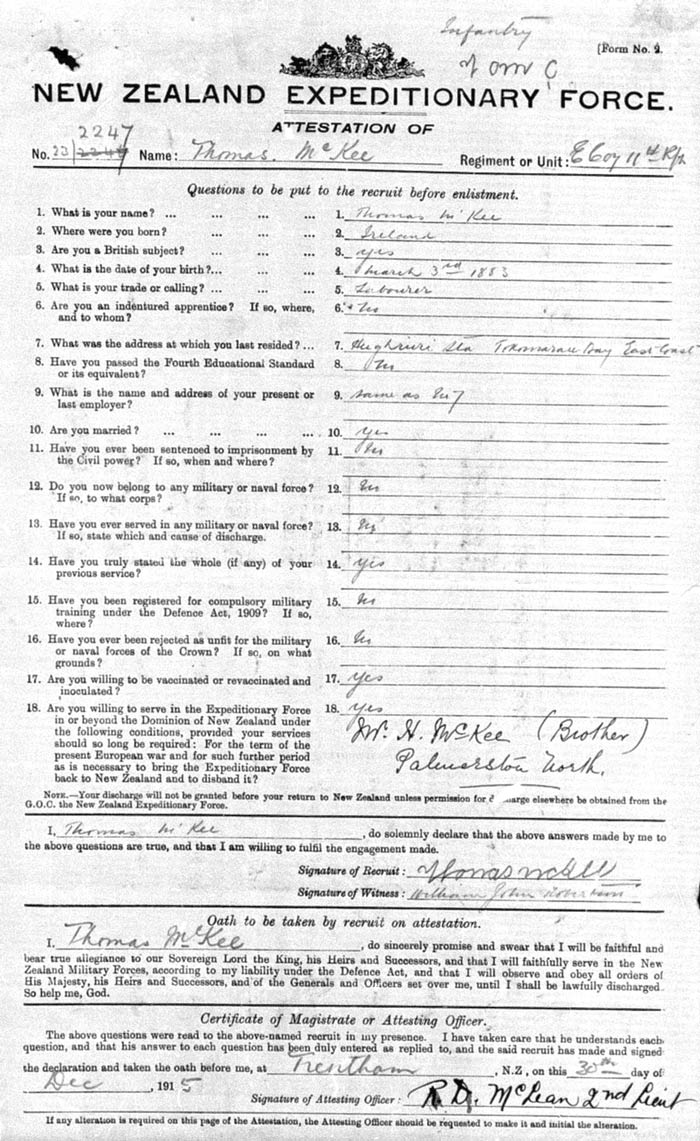 Infantry
[Form No. 2.
NEW ZEALAND EXPEDITIONARY FORCE.
ATTESTATION OF
2247
No. 23/ Name: Thomas. McKee Regiment or Unit: E Coy 11th
Questions to be put to the recruit before enlistment.
1. What is your name? ... ... ... ... 1. Thomas McKee
2. Where were you born? ... ... ... 2. Ireland
3. Are you a British subject? ... ... ... 3. yes
4. What is the date of your birth?... ... ... 4. March 3rd 1883
5. What is your trade or calling? ... ... ... 5. Labourer
6. Are you an indentured apprentice? If so, where, 6. No
and to whom?
7. What was the address at which you last resided? ... 7. Stn Tokomaru Bay East Coast
8. Have you passed the Fourth Educational Standard 8. No
or its equivalent?
9. What is the name and address of your present or 9. same as No 7
last employer?
10. Are you married? ... ... ... ... 10. yes
11. Have you ever been sentenced to imprisonment by 11. No
the Civil power? If so, when and where?
12. Do you now belong to any military or naval force? 12. No
If so, to what corps?
13. Have you ever served in any military or naval force? 13. No
If so, state which and cause of discharge.
14. Have you truly stated the whole (if any) of your 14. yes
previous service?
15. Have you been registered for compulsory military 15. No
training under the Defence Act, 1909? If so,
where?
16. Have you ever been rejected as unfit for the military 16. No
or naval forces of the Crown? If so, on what
grounds?
17. Are you willing to be vaccinated or revaccinated and 17. yes
inoculated?
18. Are you willing to serve in the Expeditionary Force 18. yes
in or beyond the Dominion of New Zealand under
the following conditions, provided your services
should so long be required: For the term of the
present European war and for such further period
as is necessary to bring the Expeditionary Force
back to New Zealand and to disband it?
W. H. McKee (Brother)
Palmerston North.
NOTE.—Your discharge will not be granted before your return to New Zealand unless permission for discharge elsewhere be obtained from the
G.O.C. the New Zealand Expeditionary Force.
I, Thomas McKee, do solemnly declare that the above answers made by me to
the above questions are true, and that I am willing to fulfil the engagement made.
Signature of Recruit: Thomas McKee
Signature of Witness: William John Robertson
Oath to be taken by recruit on attestation.
I, Thomas McKee, do sincerely promise and swear that I will be faithful and
bear true allegiance to our Sovereign Lord the King, his Heirs and Successors, and that I will faithfully serve in the New
Zealand Military Forces, according to my liability under the Defence Act, and that I will observe and obey all orders of
His Majesty, his Heirs and Successors, and of the Generals and Officers set over me, until I shall be lawfully discharged.
So help me, God.
Certificate of Magistrate or Attesting Officer.
The above questions were read to the above-named recruit in my presence. I have taken care that he understands each
question, and that his answer to each question has been duly entered as replied to, and the said recruit has made and signed
the declaration and taken the oath before me, at Trentham, N.Z., on this 30th day of
Dec, 1915
Signature of Attesting Officer: R. D. McLean 2nd Lieut
If any alteration is required on this page of the Attestation, the Attesting Officer should be requested to make it and initial the alteration.